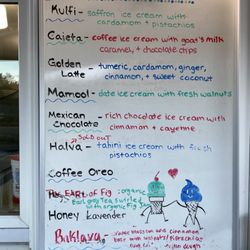 Kulfi - saffron ice cream with
cardamom + pistachios
Cajeta - coffee ice cream with goat's milk
caramel, + chocolate chips
Golden Latte - tumeric, cardamom, ginger,
cinnamon, + sweet coconut
Mamool - date ice cream with fresh walnuts
Mexican Chocolate - rich chocolate ice cream with
cinnamon + cayenne
SOLD OUT
Halva - tahini ice cream with fresh
pistachios
Coffee Oreo
The EART of Fig : organic
Earl grey tea swirled
with organic fig
Honey Lavender
Baklava
and cinnamon
with walnuts